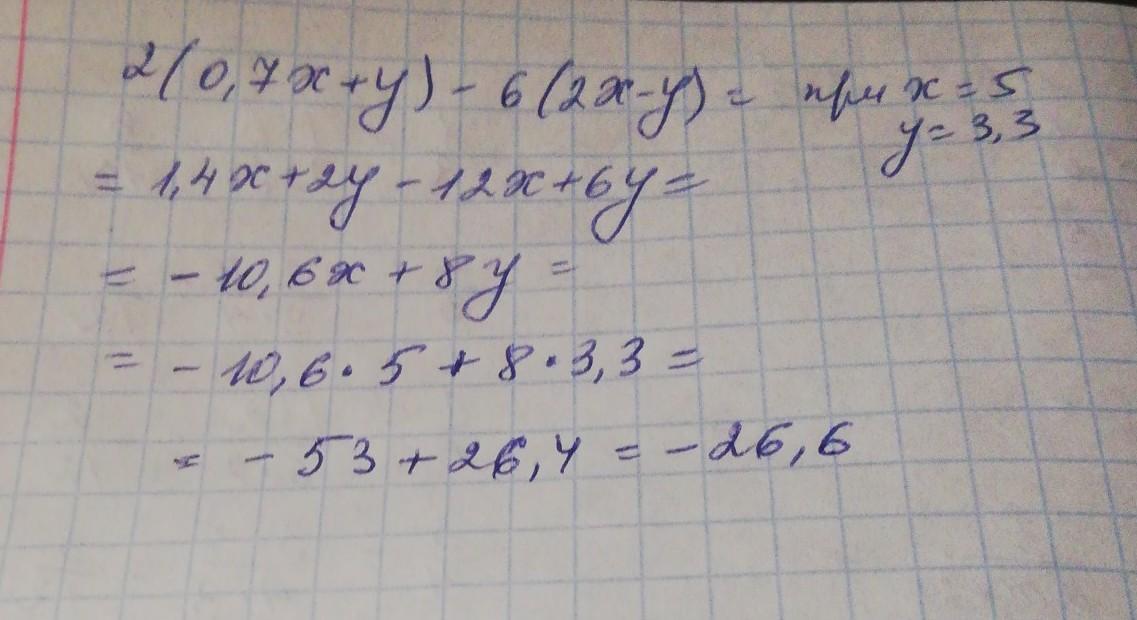 2(0,7x+y) - 6(2x-y) = при x = 5
y = 3,3
= 1,4x+2y - 12x+6y =
= - 10,6x + 8y =
= - 10,6 · 5 + 8 · 3,3 =
= - 53 + 26,4 = - 26,6